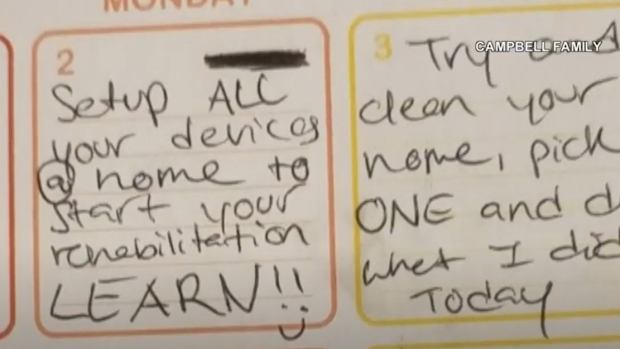 MONDAY
CAMPBELL FAMILY
2
Setup ALL
your devices
@ home to
start your
rehabilitation
LEARN!!
3
Try and
clean your
home, pick
ONE and
what I did
Today